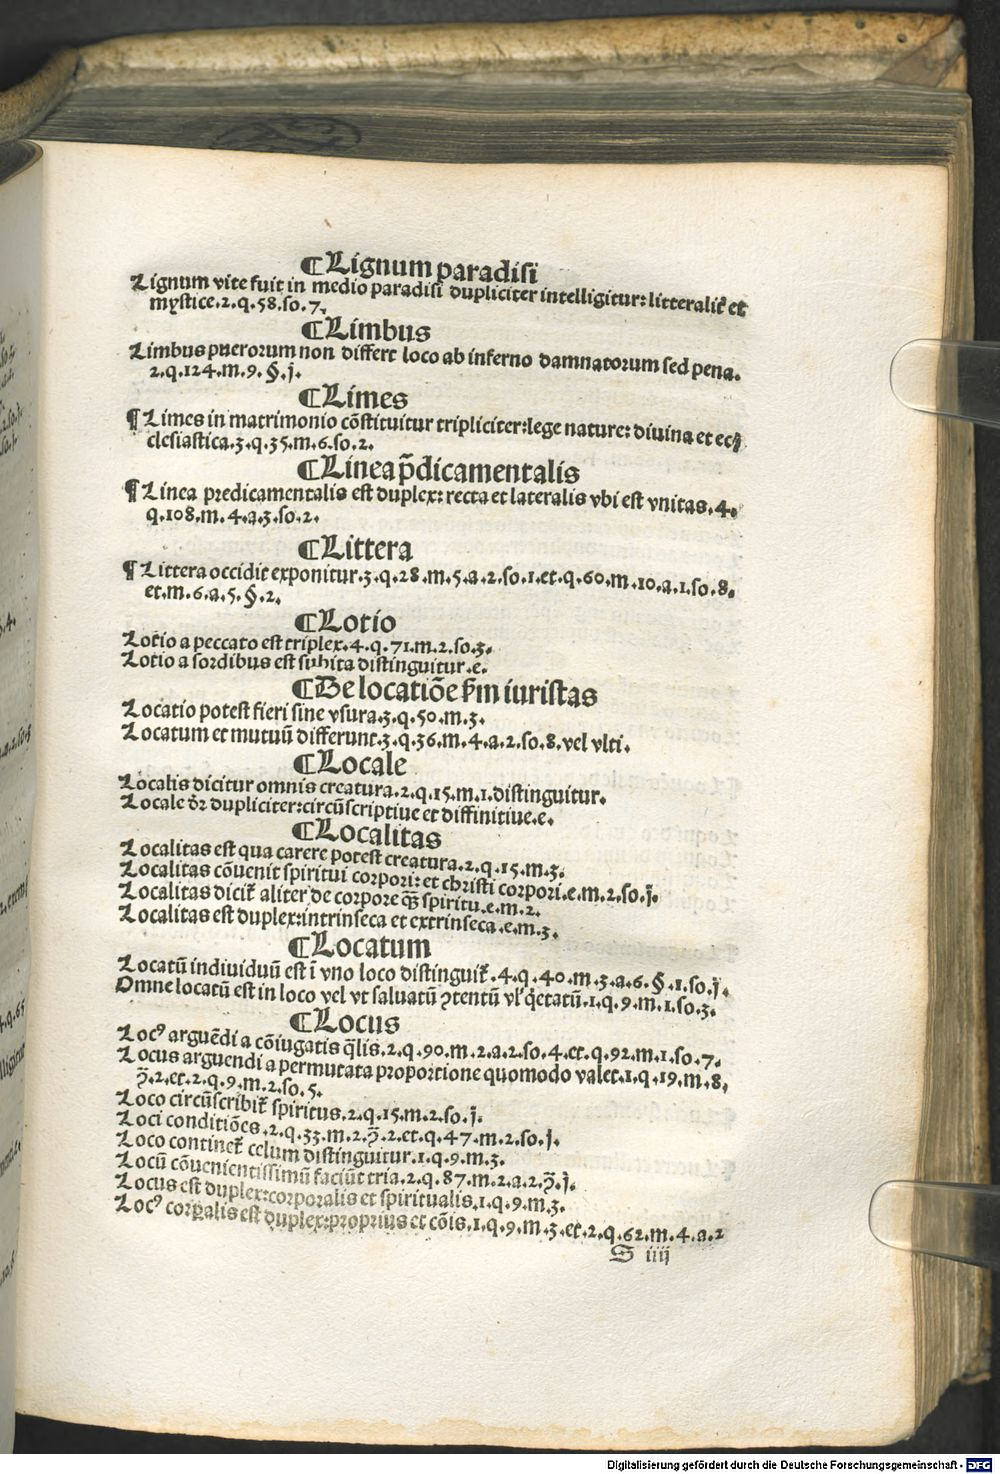 ¶Lignum paradisi
Lignum vite fuit in medio paradisi dupliciter intelligitur: litteralit̃ et
mystice.2.q.58.so.7.
¶Limbus
Limbus puerorum non differt loco ab inferno damnatorum sed pena.
2.q.124.m.9.§.j.
¶Limes
¶Limes in matrimonio cõstituitur tripliciter:lege nature: diuina et ec
clesiastica.3.q.35.m.6.so.2.
¶Linea p̃dicamentalis
¶Linea predicamentalis est duplex: recta et lateralis vbi est vnitas.4.
q.108.m.4.a.3.so.2.
¶Littera
¶Littera occidit exponitur.3.q.28.m.5.a.2.so.1.et.q.60.m.10.a.1.so.8.
et.m.6.a.5.§.2.
¶Lotio
Lotio a peccato est triplex.4.q.71.m.2.so.3.
Lotio a sordibus est subita distinguitur.e.
¶De locatiõe ẜm iuristas
Locatio potest fieri sine vsura.3.q.50.m.3.
Locatum et mutuũ differunt.3.q.36.m.4.a.2.so.8.vel vlti.
¶Locale
Localis dicitur omnis creatura.2.q.15.m.1.distinguitur.
Locale dr̃ dupliciter:circũscriptiue et diffinitiue.e.
¶Localitas
Localitas est qua carere potest creatura.2.q.15.m.3.
Localitas cõuenit spiritui corpori: et christi corpori.e.m.2.so.j.
Localitas dicit̃ aliter de corpore q̃ȝ spiritu.e.m.2.
Localitas est duplex:intrinseca et extrinseca.e.m.3.
¶Locatum
Locatũ indiuiduũ est ĩ vno loco distinguit̃.4.q.40.m.3.a.6.§.1.so.j.
Omne locatũ est in loco vel vt saluatũ ꝯtentũ vl' q̃etatũ.1.q.9.m.1.so.3.
¶Locus
Locꝰ arguẽdi a cõiugatis q̃lis.2.q.90.m.2.a.2.so.4.et.q.92.m.1.so.7.
Locus arguendi a permutata proportione quomodo valet.1.q.19.m.8.
ꝯ̃.2.et.2.q.9.m.2.so.5.
Loco circũscribit̃ spiritus.2.q.15.m.2.so.j.
Loci conditiões.2.q.33.m.2.ꝯ̃.2.et.q.47.m.2.so.j.
Loco continet̃ celum distinguitur.1.q.9.m.3.
Locũ cõuenientissimũ faciũt tria.2.q.87.m.2.a.2.ꝯ̃.j.
Locus est duplex:corporalis et spiritualis.1.q.9.m.3.
Locꝰ corꝑalis est duplex:proprius et cõis.1.q.9.m.3.et.2.q.62.m.4.a.2
S iiij
Digitalisierung gefördert durch die Deutsche Forschungsgemeinschaft - DFG